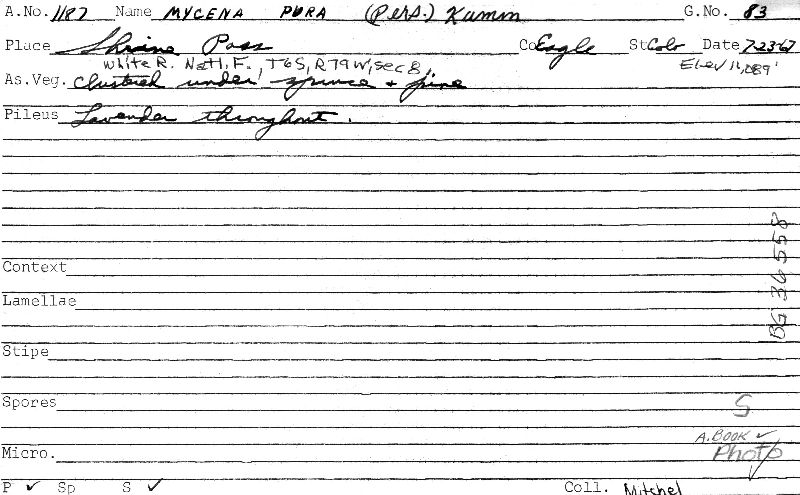 A.No. 1187 Name MYCENA PURA (Pers.) Kumm G.No. 83
Place Shrine Pass Co Eagle St Colo Date 7-23-67
White R. Natl. F., T6S, R79W, sec 8, Elev 11,089'
As.Veg. clustered under spruce + pine
Pileus Lavender throughout.
Context
Lamellae
Stipe
Spores
Micro.
P ✓ Sp S ✓ Coll. Mitchel
BG 36558
S
A. BOOK ✓
Photo ✓